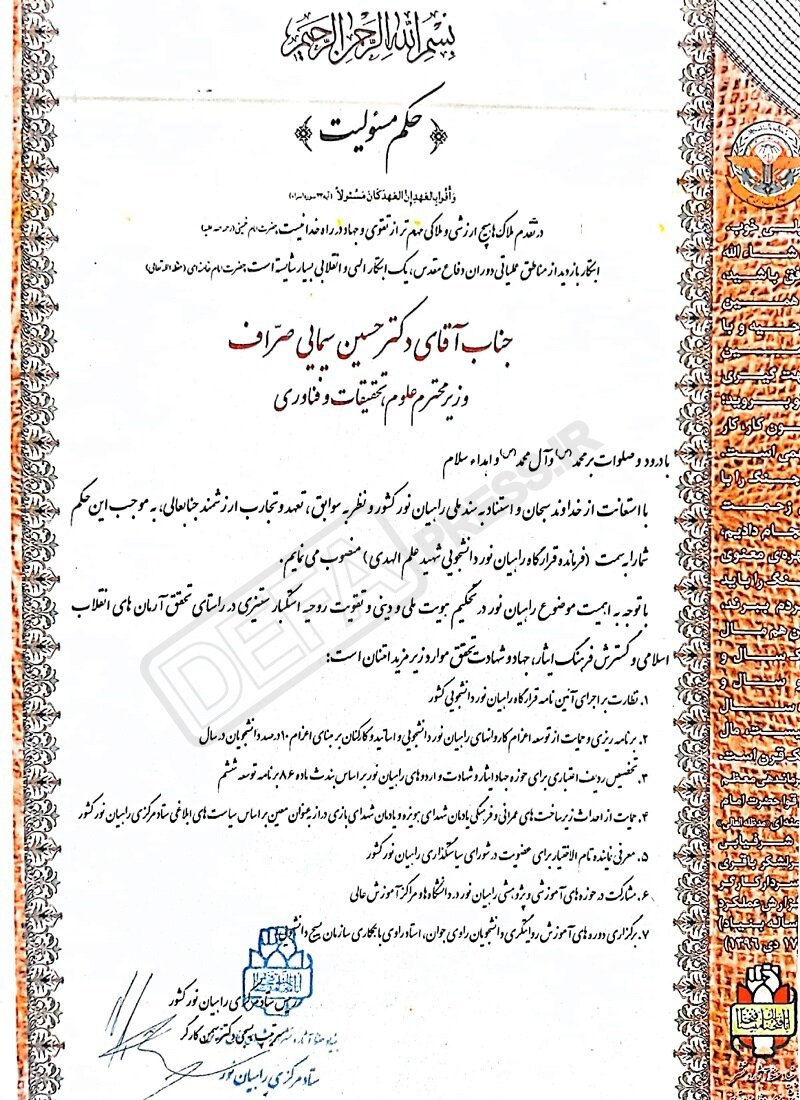 بسم الله الرحمن الرحیم
حکم مسئولیت
وَ أَوْفُوا بِالعَهدِ إِنَّ العَهدَ كَانَ مَسْئُولاً (آیه ۳۴ سوره اسراء)
در تقدم ملاک ها هیچ ارزشی و ملاکی مهم تر از تقوی و جهاد در راه خدا نیست، حضرت امام خمینی (رحمه الله علیه)
ابتکار بازدید از مناطق عملیاتی دوران دفاع مقدس، یک ابتکار الهی و انقلابی بسیار شایسته است، حضرت امام خامنه ای (حفظه الله تعالی)
جناب آقای دکتر حسین سیمایی صرّاف
وزیر محترم علوم، تحقیقات و فناوری
با درود و صلوات بر محمد (ص) و آل محمد (ص) و اهداء سلام
با استعانت از خداوند سبحان و استناد به سند ملی راهیان نور کشور و نظر به سوابق، تعهد و تجارب ارزشمند جنابعالی، به موجب این حکم
شما را به سمت (فرمانده قرارگاه راهیان نور دانشجویی شهید علم الهدی) منصوب می نمایم.
با توجه به اهمیت موضوع راهیان نور در تحکیم هویت ملی و دینی و تقویت روحیه استکبار ستیزی در راستای تحقق آرمان های انقلاب
اسلامی و گسترش فرهنگ ایثار، جهاد و شهادت تحقق موارد زیر مزید امتنان است:
۱. نظارت بر اجرای آئین نامه قرارگاه راهیان نور دانشجویی کشور
۲. برنامه ریزی و حمایت از توسعه اعزام کاروانهای راهیان نور دانشجویی و اساتید و کارکنان بر مبنای اعزام ۱۰ درصد دانشجویان در سال
۳. تخصیص ردیف اعتباری برای حوزه جهاد ایثار و شهادت و اردوهای راهیان نور بر اساس بند ث ماده ۸۶ برنامه توسعه ششم
۴. حمایت از احداث زیرساخت های عمرانی و فرهنگی یادمان شهدای هویزه و یادمان شهدای بازی دراز به عنوان معین بر اساس سیاست های ابلاغی ستاد مرکزی راهیان نور کشور
۵. معرفی نماینده تام الاختیار برای عضویت در شورای سیاستگذاری راهیان نور کشور
۶. مشارکت در حوزه های آموزشی و پژوهشی راهیان نور در دانشگاه ها و مراکز آموزش عالی
۷. برگزاری دوره های آموزش روایتگری دانشجویان راوی جوان، استاد راوی با همکاری سازمان بسیج دانشجویی
رئیس ستاد مرکزی راهیان نور کشور
سرتیپ پاسدار بسیجی دکتر بهمن کارگر
ستاد مرکزی راهیان نور
DEFAPRESS.IR
خیلی خوب،
ان شاء الله
موفق باشید،